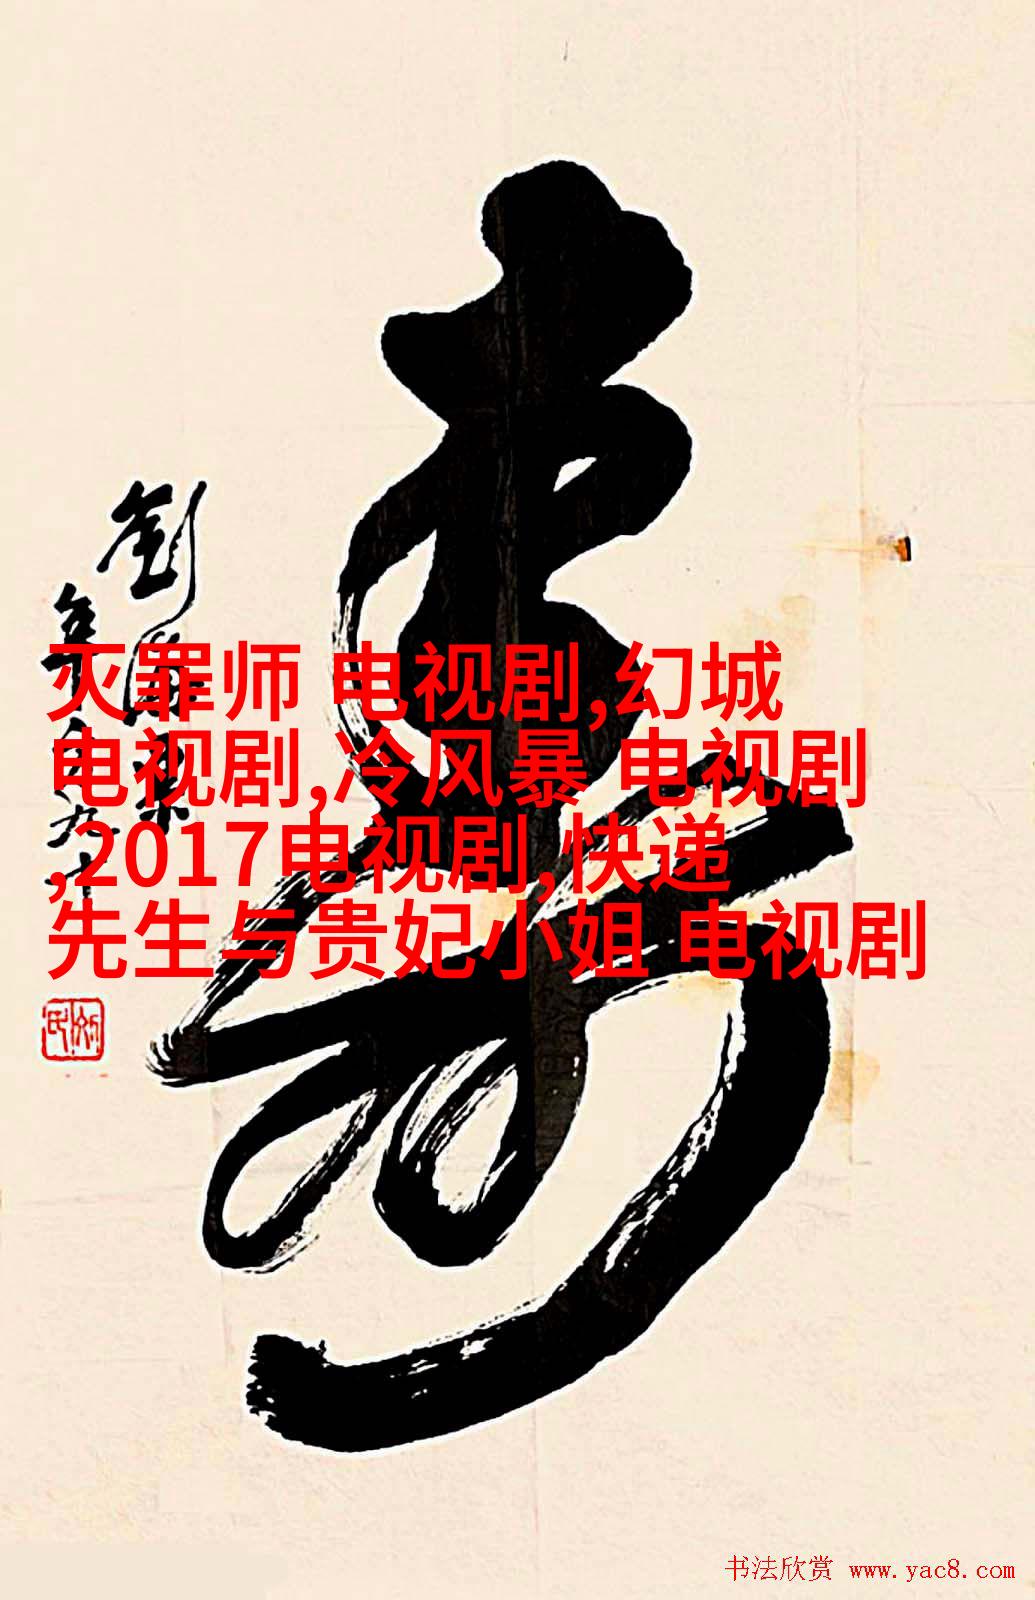 寿
灭罪师 电视剧,幻城
电视剧,冷风暴 电视剧
,2017电视剧,快递
先生与贵妃小姐 电视剧
书法欣赏 www.yac8.com